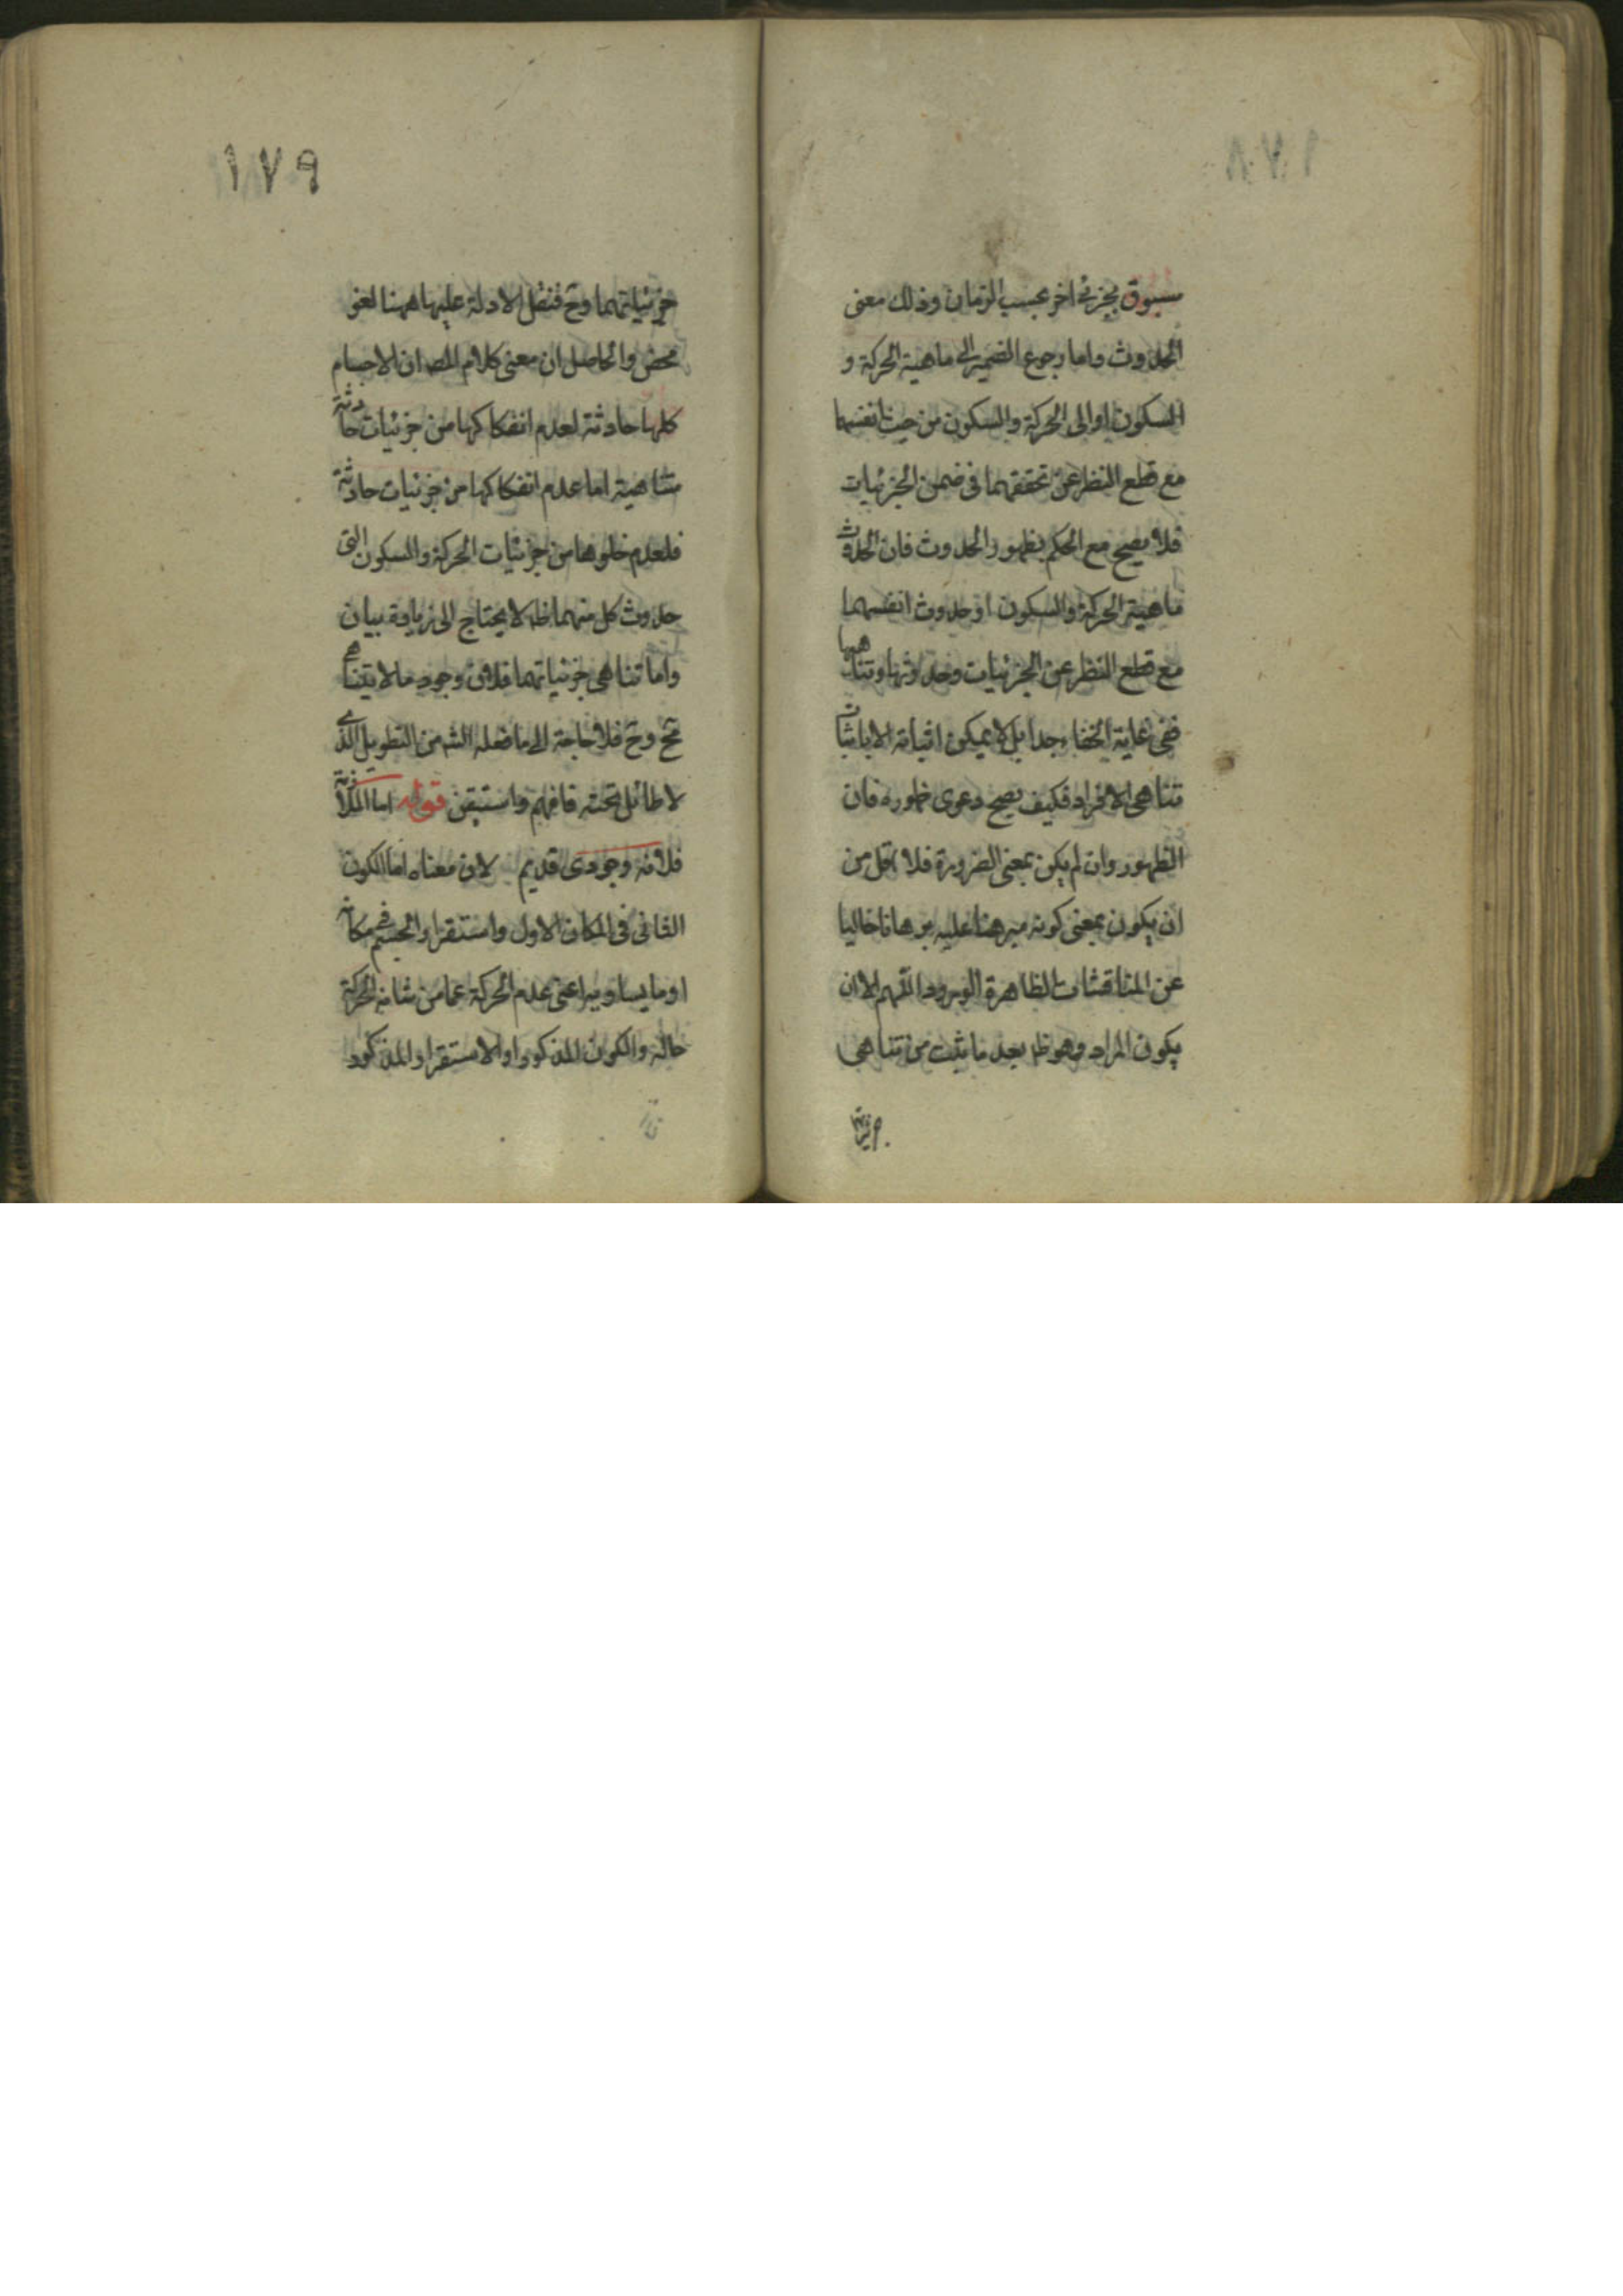 مسبوق بجزئى اخر بحسب الزمان وذلك معنى
الحدوث واما رجوع الضمير الى ماهية الحركة و
السكون او الى الحركة والسكون من حيث انفسهما
مع قطع النظر عن تحققهما فى ضمن الجزئيات
فلا يصح مع الحكم بظهور الحدوث فان الحدوث
ماهية الحركة والسكون او حدوث انفسهما
مع قطع النظر عن الجزئيات وحدوثها وتناهيها
ففى غاية الخفاء جدا بل لا يمكن اثباته الا باثبات
تناهى الافراد فكيف يصح دعوى ظهوره فان
الظهور وان لم يكن بمعنى الضرورة فلا اقل من
ان يكون بمعنى كونه مبرهنا عليه برهانا خاليا
عن المناقشات الظاهرة الورود اللهم الا ان
يكون المراد وهو ظ بعد ما ثبت من تناهى
جزئيا
١٧٩
جزئياتهما وح فنقل الادلة عليها ههنا لغو
محض والحاصل ان معنى كلام المص ان الاجسام
كلها حادثة لعدم انفكاكها من جزئيات حادثة
متناهية اما عدم انفكاكها من جزئيات حادثة
فلعدم خلوها من جزئيات الحركة والسكون التى
حدوث كل منهما ظ لا يحتاج الى زيادة بيان
واما تناهى جزئياتهما فلان وجود ما لا يتناهى
مح وح فلا حاجة الى ما فعله الش من التطويل الذى
لا طائل تحته فافهم واستيقن قوله اما الملازمة
فلانه وجودى قديم لان معناه اما الكون
الثانى فى المكان الاول واستقرار الجسم فى مكانه
او ما يساويه اعنى عدم الحركة عما من شانه الحركة
حاله والكون المذكور او الاستقرار المذكور